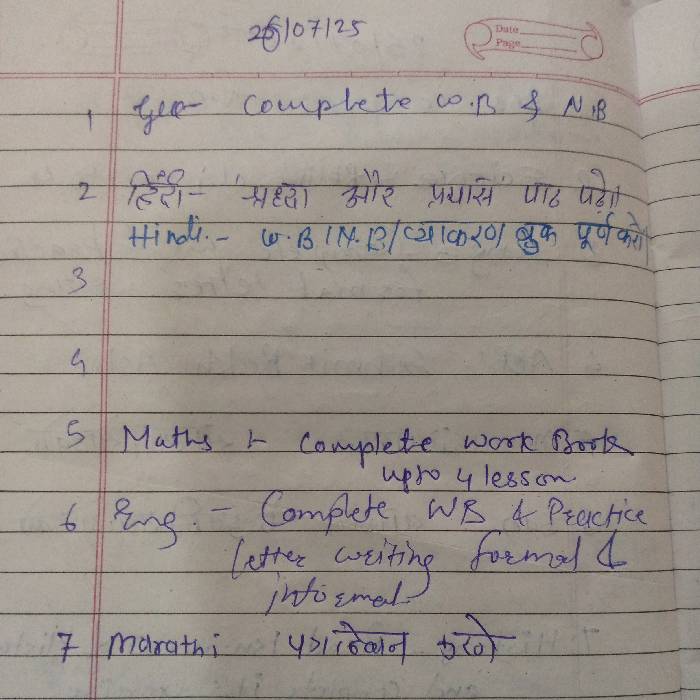 25/07/25
Date
Page
1 Geo- Complete W.B & N.B
2 हिंदी- श्रध्दा और प्रयास पाठ पढ़ो।
Hindi.- W.B/N.B/व्याकरण बुक पूर्ण करो।
3
4
5 Maths :- Complete work Book
upto 4 lesson
6 Eng. - Complete WB & Practice
letter writing formal &
informal
7 Marathi करणे